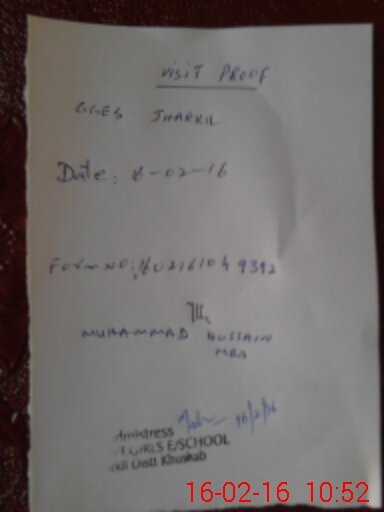 VISIT PROOF
GGES JHARKIL
Date: 16-02-16
Form NO:
MUHAMMAD HUSSAIN
MBA
16/2/16
dmistress
T.GIRLS E/SCHOOL
Distt Khushab
16-02-16 10:52